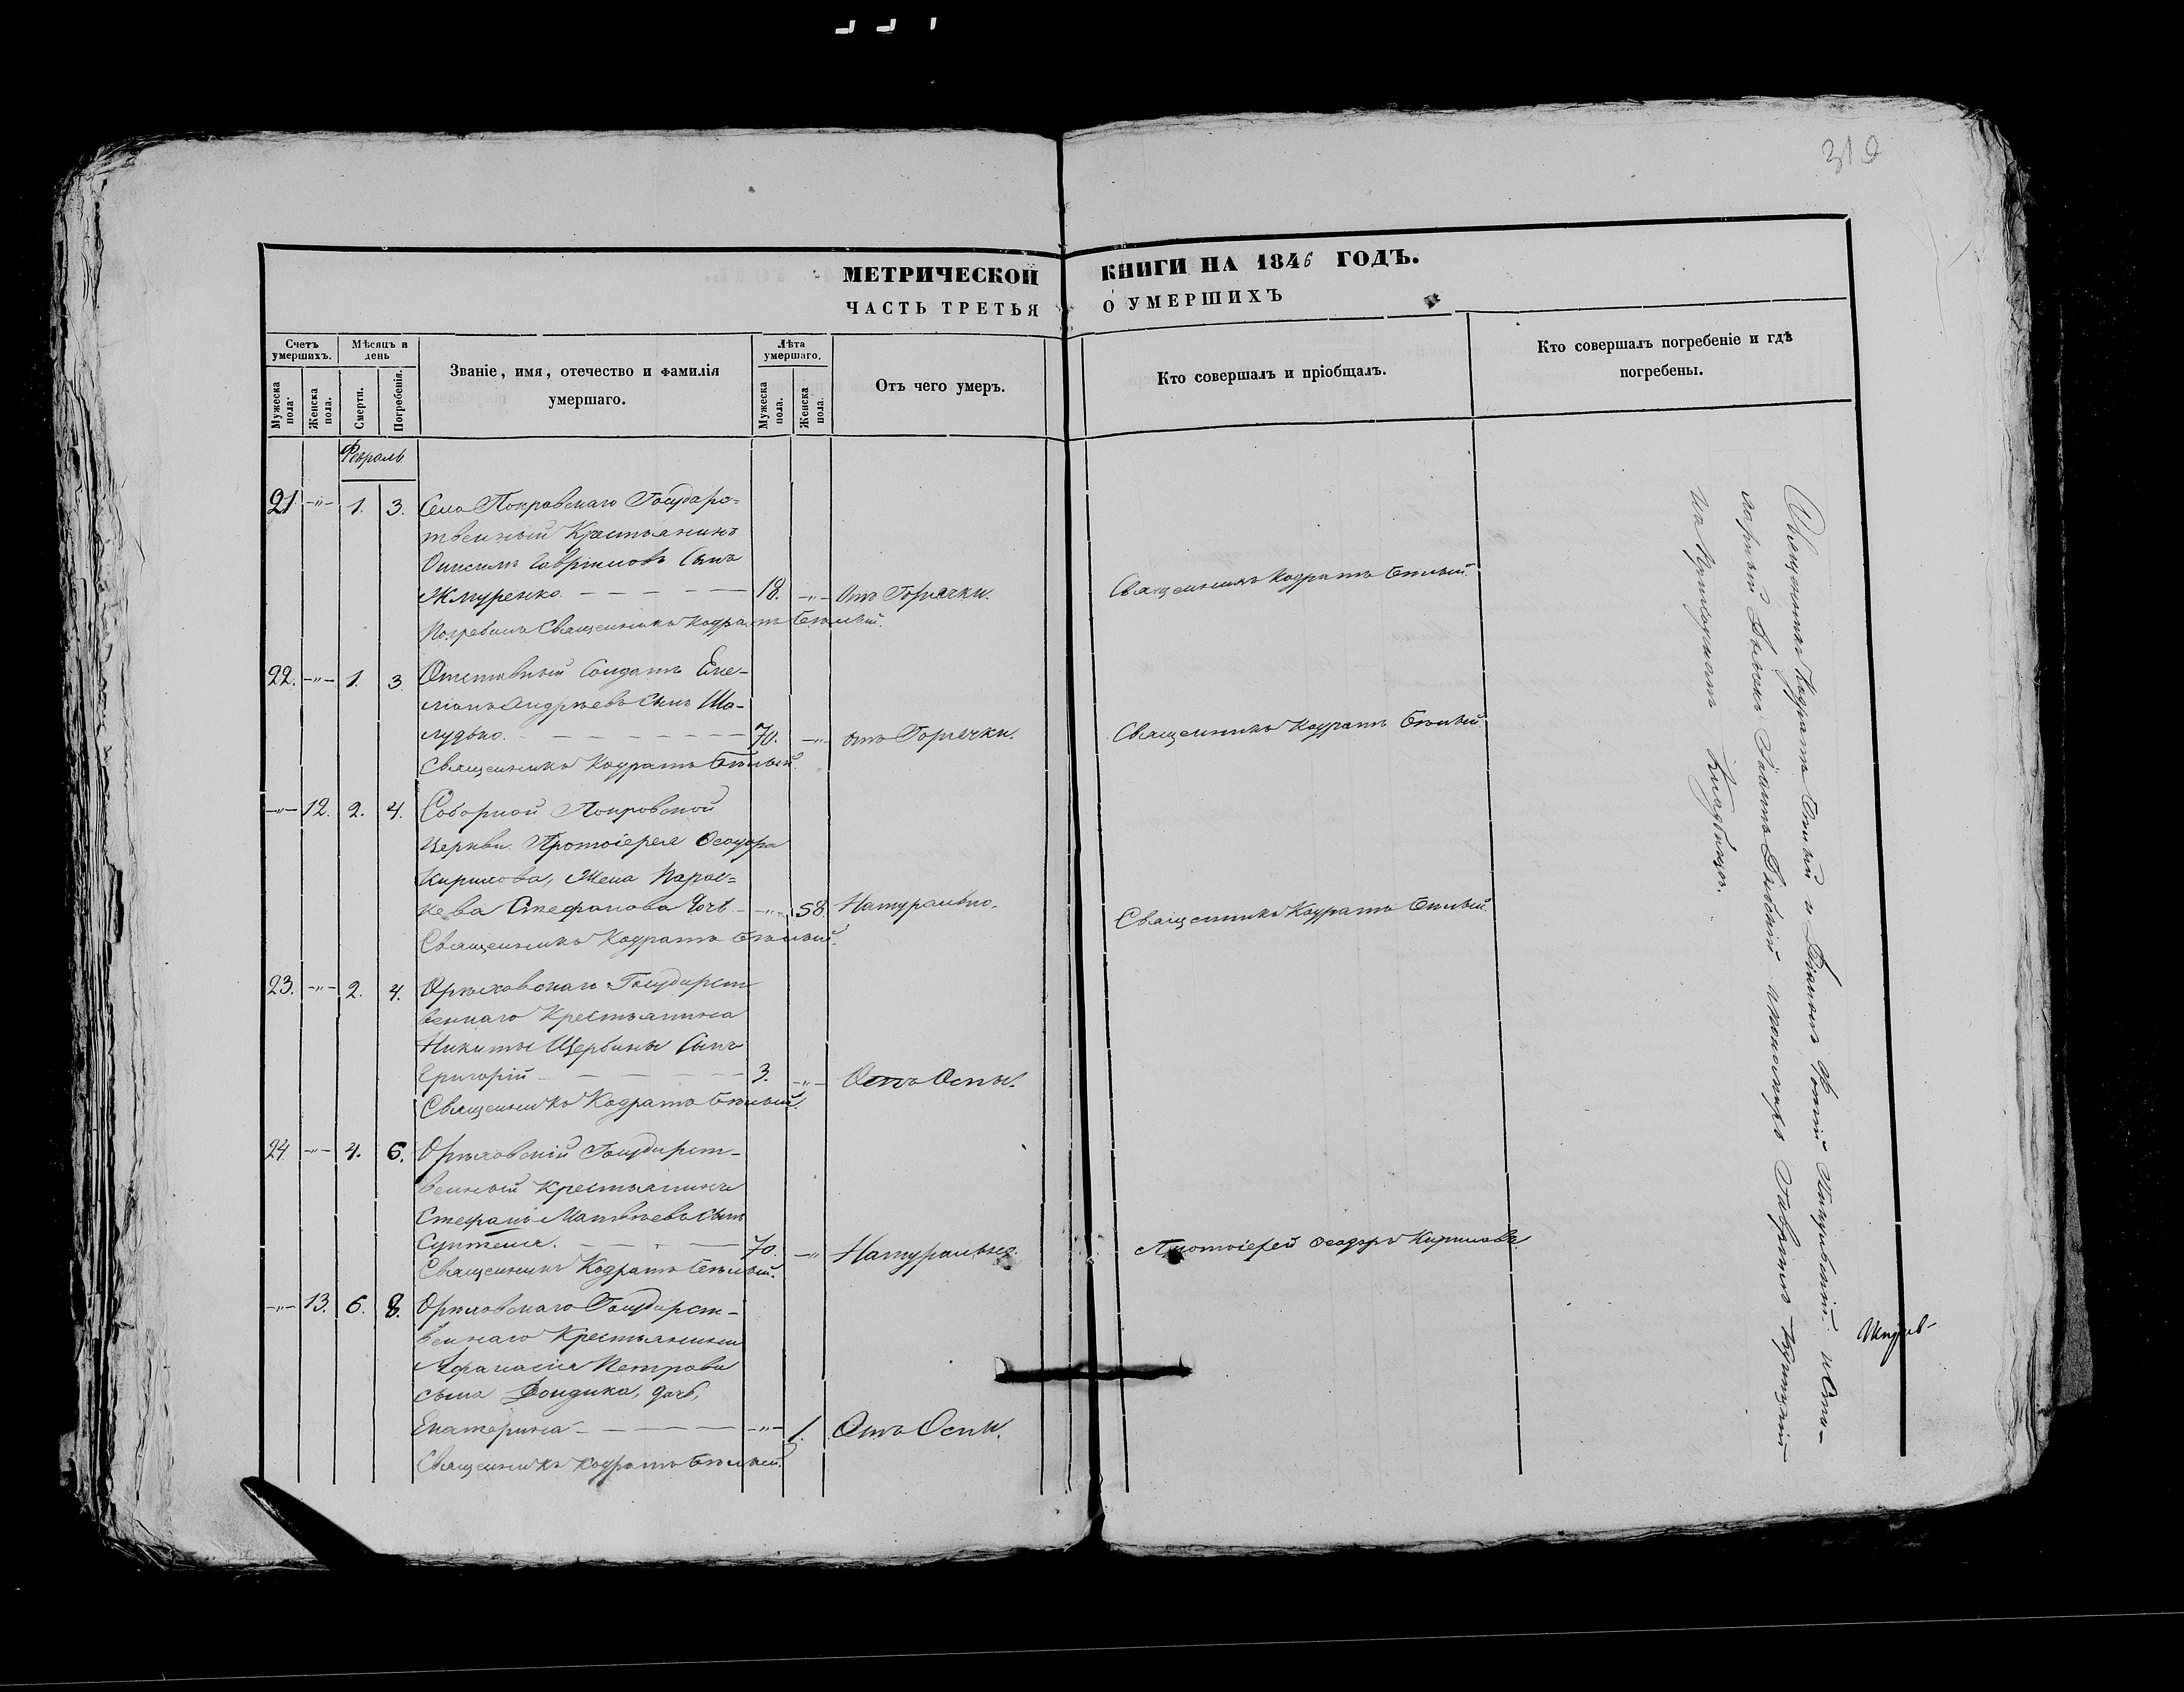 310
МЕТРИЧЕСКОЙ КНИГИ НА 1846 ГОДЪ.
ЧАСТЬ ТРЕТЬЯ О УМЕРШИХЪ
Счетъ умершихъ.
Мужеска пола.
Женска пола.
Мѣсяцъ и день
Смерти.
Погребенія.
Званіе, имя, отечество и фамилія
умершаго.
Лѣта умершаго.
Мужеска пола.
Женска пола.
Отъ чего умеръ.
Кто совершалъ и пріобщалъ.
Кто совершалъ погребеніе и гдѣ
погребены.
Февраль
21. -"- 1. 3. Села Покровскаго Государс=
твенный Крестьянинъ
Онисимъ Гавріиловъ Сынъ
Жмуренко. 18. -"- Отъ Горячки. Священникъ Кодратъ Бѣлый.
Погребалъ Священникъ Кодратъ Бѣлый.
22. -"- 1. 3. Отставный Солдатъ Еме-
ліанъ Андреевъ Сынъ Ша-
лудько. 70. -"- отъ Горячки. Священникъ Кодратъ Бѣлый.
Священникъ Кодратъ Бѣлый.
-"- 12. 2. 4. Соборной Покровской
Церкви. Протоіерея Ѳеодора
Кирилова, Жена Парас=
кева Стефанова дочь -"- 58. Натурально. Священникъ Кодратъ Бѣлый.
Священникъ Кодратъ Бѣлый.
23. -"- 2. 4. Орѣховскаго Государст
веннаго Крестьянина
Никиты Щербины Сынъ
Григорій 3. -"- Отъ Оспы.
Священникъ Кодратъ Бѣлый.
24. -"- 4. 6. Орѣховскій Государст-
венный Крестьянинъ
Стефанъ Матвѣевъ Сынъ
70. -"- Натурально. Протоіерей Ѳеодоръ Кириловъ.
Священникъ Кодратъ Бѣлый.
-"- 13. 6. 8. Орѣховскаго Государст-
веннаго Крестьянина
Афанасія Петрова
сына дочь,
Екатерина -"- 1. Отъ Оспы.
Священникъ Кодратъ Бѣлый.
Священникъ Кодратъ Бѣлый и Діаконъ и Ста-
рый Дьякон и пономарь Гавріилъ
на Приходскомъ Кладбищѣ.